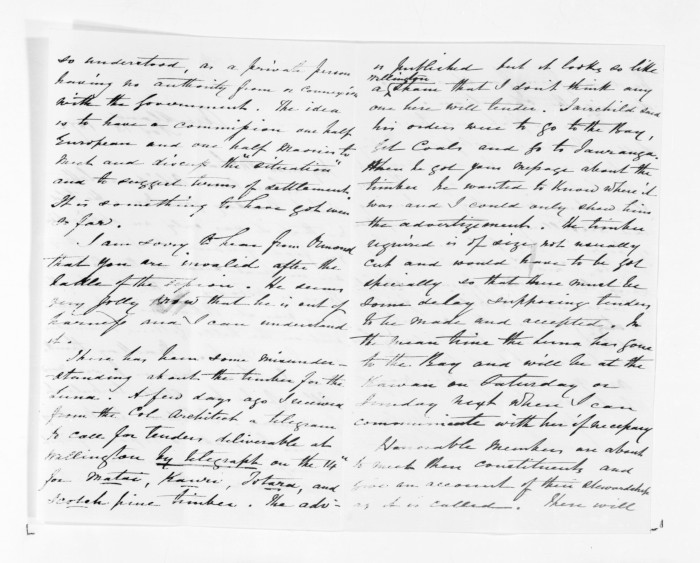 so understood, as a private person
having no authority from or connexion
with the Government. The idea
is to have a commission one half
European and one half Maori to
meet and discuss the "situation"
and to suggest terms of settlement.
It is something to have got even
so far.
I am sorry to hear from Ormond
that you are invalid after the
battle of the session. He seems
very jolly now that he is out of
harness and I can understand
it.
There has been some misunder-
standing about the timber for the
Luna. A few days ago I received
from the Col. Architect a telegram
to call for tenders deliverable at
Wellington by telegraph on the 14th
for Matai, Kauri, Totara, and
Scotch pine timber. The adv-
is published but it looks so like
a Wellington share that I don't think any
one here will tender. Fairchild said
his orders were to go to the Bay,
get Coals and go to Tauranga.
When he got your message about the
timber he wanted to know where it
was and I could only show him
the advertizement. The timber
required is of size not usually
cut and would have to be got
specially so that there must be
some delay supposing tenders
to be made and accepted. In
the mean time the Luna has gone
to the Bay and will be at the
Kawau on Saturday or
Sunday next when I can
communicate with her if necessary
Honorable Members are about
to meet their constituents and
give an account of their stewardship
as it is called. There will